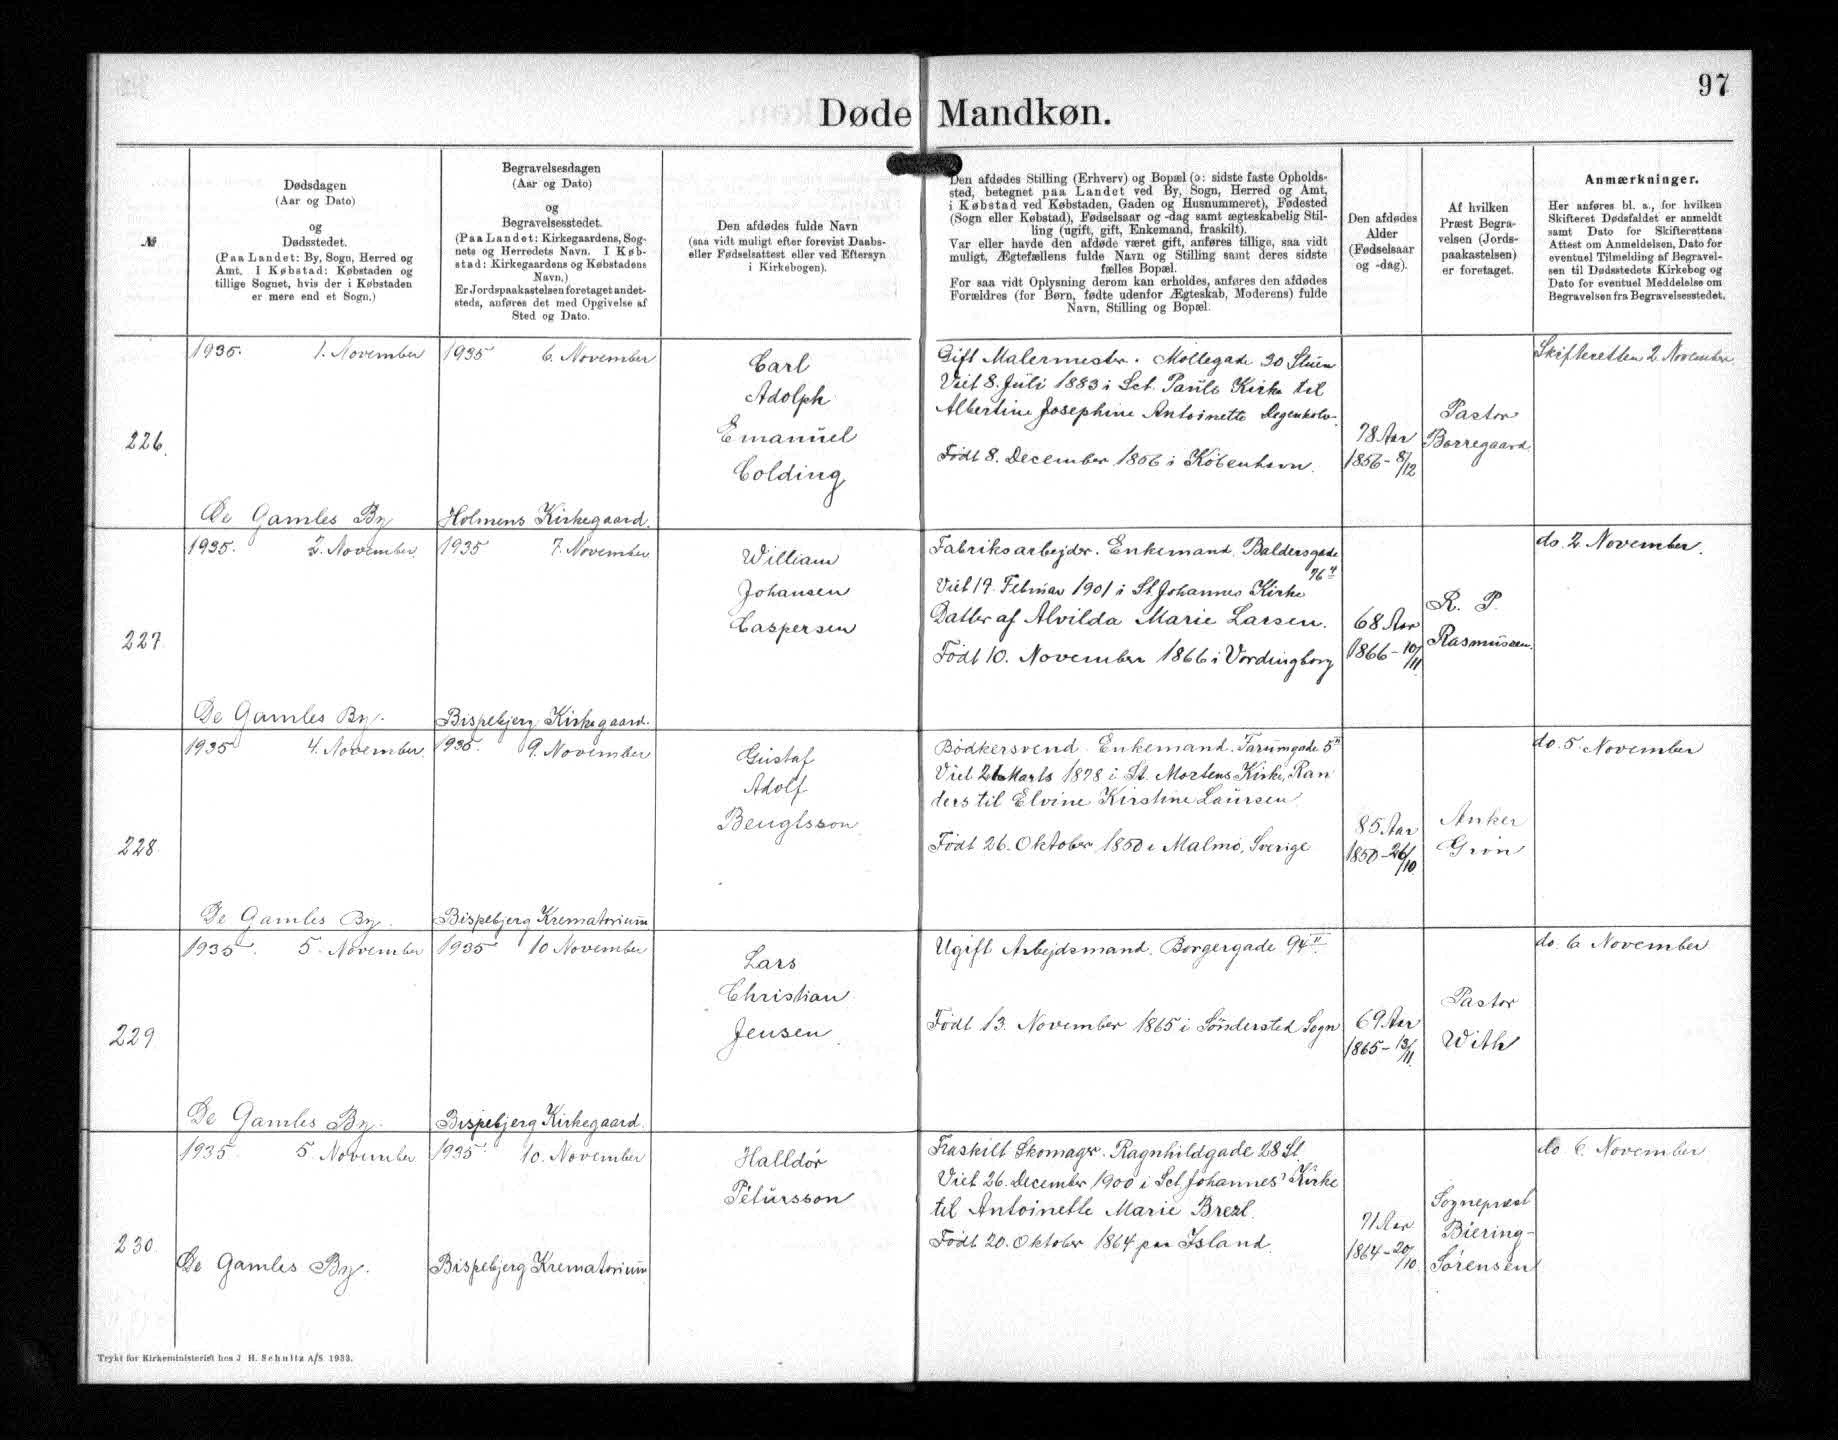 97
Døde Mandkøn.
№
Dødsdagen
(Aar og Dato)
og
Dødsstedet.
(Paa Landet: By, Sogn, Herred og
Amt. I Købstad: Købstaden og
tillige Sognet, hvis der i Købstaden
er mere end et Sogn.)
Begravelsesdagen
(Aar og Dato)
og
Begravelsesstedet.
(Paa Landet: Kirkegaardens, Sog-
nets og Herredets Navn. I Køb-
stad: Kirkegaardens og Købstadens
Navn.)
Er Jordspaakastelsen foretaget andet-
steds, anføres det med Opgivelse af
Sted og Dato.
Den afdødes fulde Navn
(saa vidt muligt efter forevist Daabs-
eller Fødselsattest eller ved Eftersyn
i Kirkebogen).
Den afdødes Stilling (Erhverv) og Bopæl (ɔ: sidste faste Opholds-
sted, betegnet paa Landet ved By, Sogn, Herred og Amt,
i Købstad ved Købstaden, Gaden og Husnummeret), Fødested
(Sogn eller Købstad), Fødselsaar og -dag samt ægteskabelig Stil-
ling (ugift, gift, Enkemand, fraskilt).
Var eller havde den afdøde været gift, anføres tillige, saa vidt
muligt, Ægtefællens fulde Navn og Stilling samt deres sidste
fælles Bopæl.
For saa vidt Oplysning derom kan erholdes, anføres den afdødes
Forældres (for Børn, fødte udenfor Ægteskab, Moderens) fulde
Navn, Stilling og Bopæl.
Den afdødes
Alder
(Fødselsaar
og -dag).
Af hvilken
Præst Begra-
velsen (Jords-
paakastelsen)
er foretaget.
Anmærkninger.
Her anføres bl. a., for hvilken
Skifteret Dødsfaldet er anmeldt
samt Dato for Skifterettens
Attest om Anmeldelsen, Dato for
eventuel Tilmelding af Begravel-
sen til Dødsstedets Kirkebog og
Dato for eventuel Meddelelse om
Begravelsen fra Begravelsesstedet.
226.
1935. 1. November
De Gamles By
1935 6. November
Holmens Kirkegaard.
Carl
Adolph
Emanuel
Colding
Gift Malermester. Møllegade 30 Stuen
Viet 8. Juli 1883 i Sct. Pauls Kirke til
Albertine Josephine Antoinette Degenkolv.
Født 8. December 1856 i København.
78 Aar
1856 - 8/12
Pastor
Borregaard
Skifteretten 2 November
227
1935. 2. November
De Gamles By.
1935 7. November
Bispebjerg Kirkegaard.
William
Johansen
Caspersen
Fabriksarbejder. Enkemand. Baldersgade
76
Viet 17. Februar 1901 i St Johannes Kirke
Datter af Alvilda Marie Larsen.
Født 10. November 1866 i Vordingborg
68 Aar
1866 - 10/11
R. P.
Rasmussen.
do. 2 November.
228
1935 4. November
De Gamles By.
1935. 9. November
Bispebjerg Krematorium
Gustaf
Adolf
Bengtsson
Bødkersvend. Enkemand. Tarumgade 5 II
Viet 21 Marts 1878 i St. Mortens Kirke, Ran
ders til Elvine Kirstine Laursen
Født 26. Oktober 1850 i Malmø, Sverige
85 Aar
1850 - 26/10
Anker
Grøn
do. 5. November
229
1935. 5. November
De Gamles By.
1935 10 November
Bispebjerg Kirkegaard.
Lars
Christian
Jensen
Ugift Arbejdsmand. Borgergade 94 II.
Født 13. November 1865 i Søndersted Sogn
69 Aar
1865 - 13/11
Pastor
With
do. 6 November
230
1935. 5. November
De Gamles By.
1935. 10. November
Bispebjerg Krematorium
Halldór
Pétursson
Fraskilt Skomager. Ragnhildgade 28 St.
Viet 26. December 1900 i Sct. Johannes' Kirke
til Antoinette Marie Brezl.
Født 20. Oktober 1864 paa Island.
71 Aar
1864 - 20/10
Sognepræst
Biering-
Sørensen
do 6. November
Trykt for Kirkeministeriet hos J. H. Schultz A/S 1933.